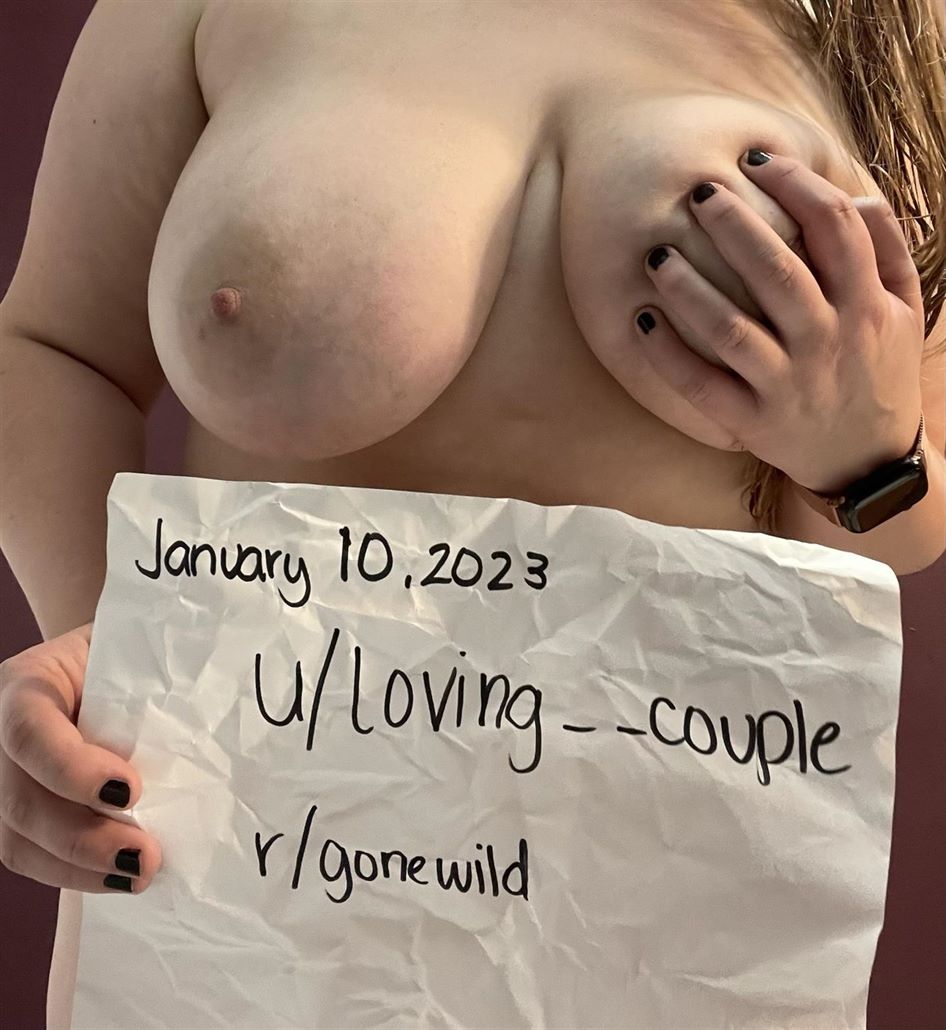 January 10, 2023
u/loving__couple
r/gonewild